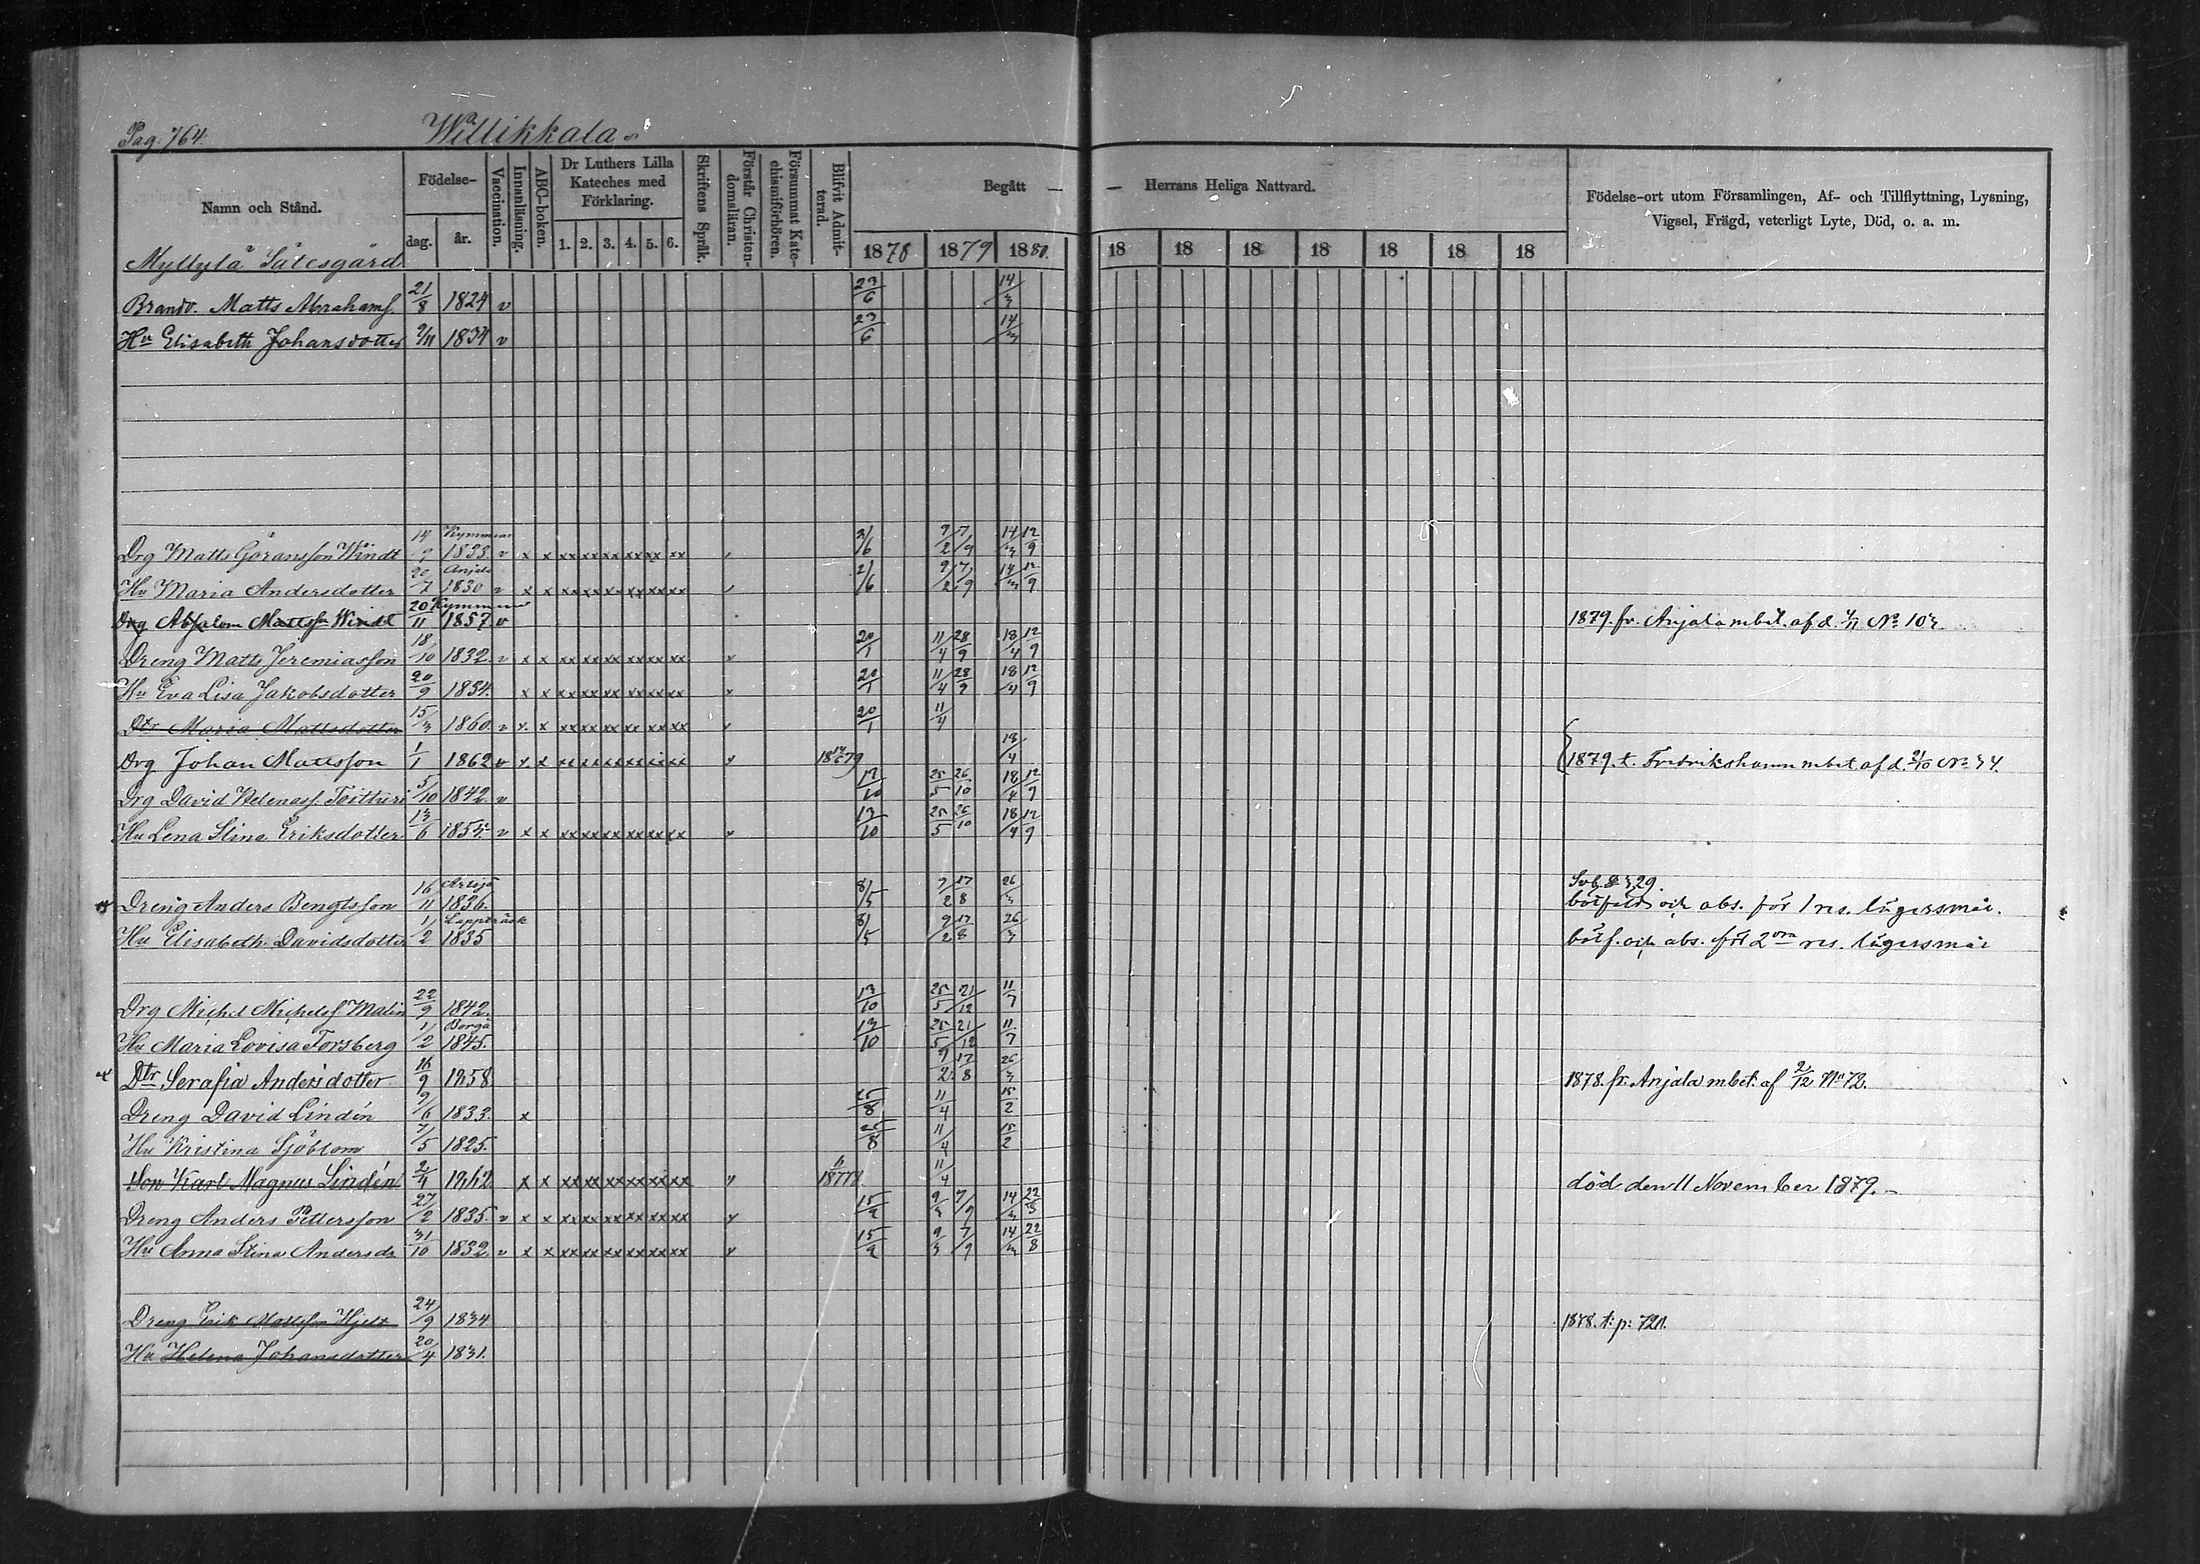 Pag. 764. Willikkala
Namn och Stånd. Födelse- dag. år. Vaccination. Innanläsning. ABC-boken. Dr Luthers Lilla Kateches med Förklaring. 1. 2. 3. 4. 5. 6. Skriftens Språk. Förstår Christendomsläran. Försummat Katechismiförhören. Blifvit Admitterad. Begått — — Herrans Heliga Nattvard. Födelse-ort utom Församlingen, Af- och Tillflyttning, Lysning, Vigsel, Frägd, veterligt Lyte, Död, o. a. m.
1878 1879 1880. 18 18 18 18 18 18 18
Myllylä Sätesgård
Brandv. Matts Abrahamss. 21/8 1824 v 23/6 14/3
Hu Elisabeth Johansdotter 9/11 1834 v 23/6 14/3
Kymmene
Drg Matts Göransson Windt 14/9 1833. v x x xx xx xx xx xx xx 2/6 9/2 7/9 14/3 12/9
Anjala
Hu Maria Andersdotter 20/7 1830 v x x xx xx xx xx xx xx 2/6 9/2 7/9 14/3 12/9
Kymmene
Drg Absalom Mattsson Windt 20/11 1857 v 1879. fr. Anjala mbet. af d. No 103
Dreng Matts Jeremiasson 18/10 1832. v x x xx xx xx xx xx xx x 20/1 11/4 28/9 18/4 12/9
Hu Eva Lisa Jakobsdotter 20/9 1834. x x xx xx xx xx xx xx x 20/1 11/4 28/9 18/4 12/9
Dtr Maria Mattsdotter 15/3 1860. v x x xx xx xx xx xx xx 20/1 11/4
Drg Johan Mattsson 1/1 1862 v x x xx xx xx xx xx xx 1879 18/4 1879. t. Fredrikshamn mbet af d. 21/10 No 34.
Drg David Helenass. Toitturi 5/10 1842. v 13/10 25/5 26/10 18/4 12/9
Hu Lena Stina Eriksdotter 13/6 1855. v x x xx xx xx xx xx xx 13/10 25/5 26/10 18/4 12/9
Artsjö
Dreng Anders Bengtsson 16/11 1836. 8/5 9/2 17/8 26/3 bötfäld och abs. för 1 res. lägersmål.
Lappträsk
Hu Elisabeth Davidsdotter 1/2 1835 8/5 9/2 17/8 26/3 bötf. och abs. för 2 res. lägersmål
Drg Michel Michelss Malin 22/9 1842. 13/10 25/5 21/12 11/7
Borgå
Hu Maria Lovisa Forsberg 1/2 1845. 13/10 25/5 21/12 11/7
Dtr Serafia Andersdotter 16/9 1858 9/2 17/8 26/3 1878. fr. Anjala mbet. af 2/12 No 72.
Dreng David Lindén 9/6 1833. x 25/8 11/4 15/2
Hu Kristina Sjöblom 7/5 1825. 25/8 11/4 15/2
Son Karl Magnus Lindén 2/4 1862 x x xx xx xx xx xx xx 11/4 död den 11 November 1879. -
Dreng Anders Pettersson 27/2 1835. v x x xx xx xx xx xx xx 15/9 9/3 7/9 14/3 22/8
Hu Anna Stina Andersdr 31/10 1832 v x x xx xx xx xx xx xx 15/9 9/3 7/9 14/3 22/8
Dreng Erik Mattsson Hjelt 24/9 1834 1878. t: p: 721.
Hu Helena Johansdotter 20/4 1831.